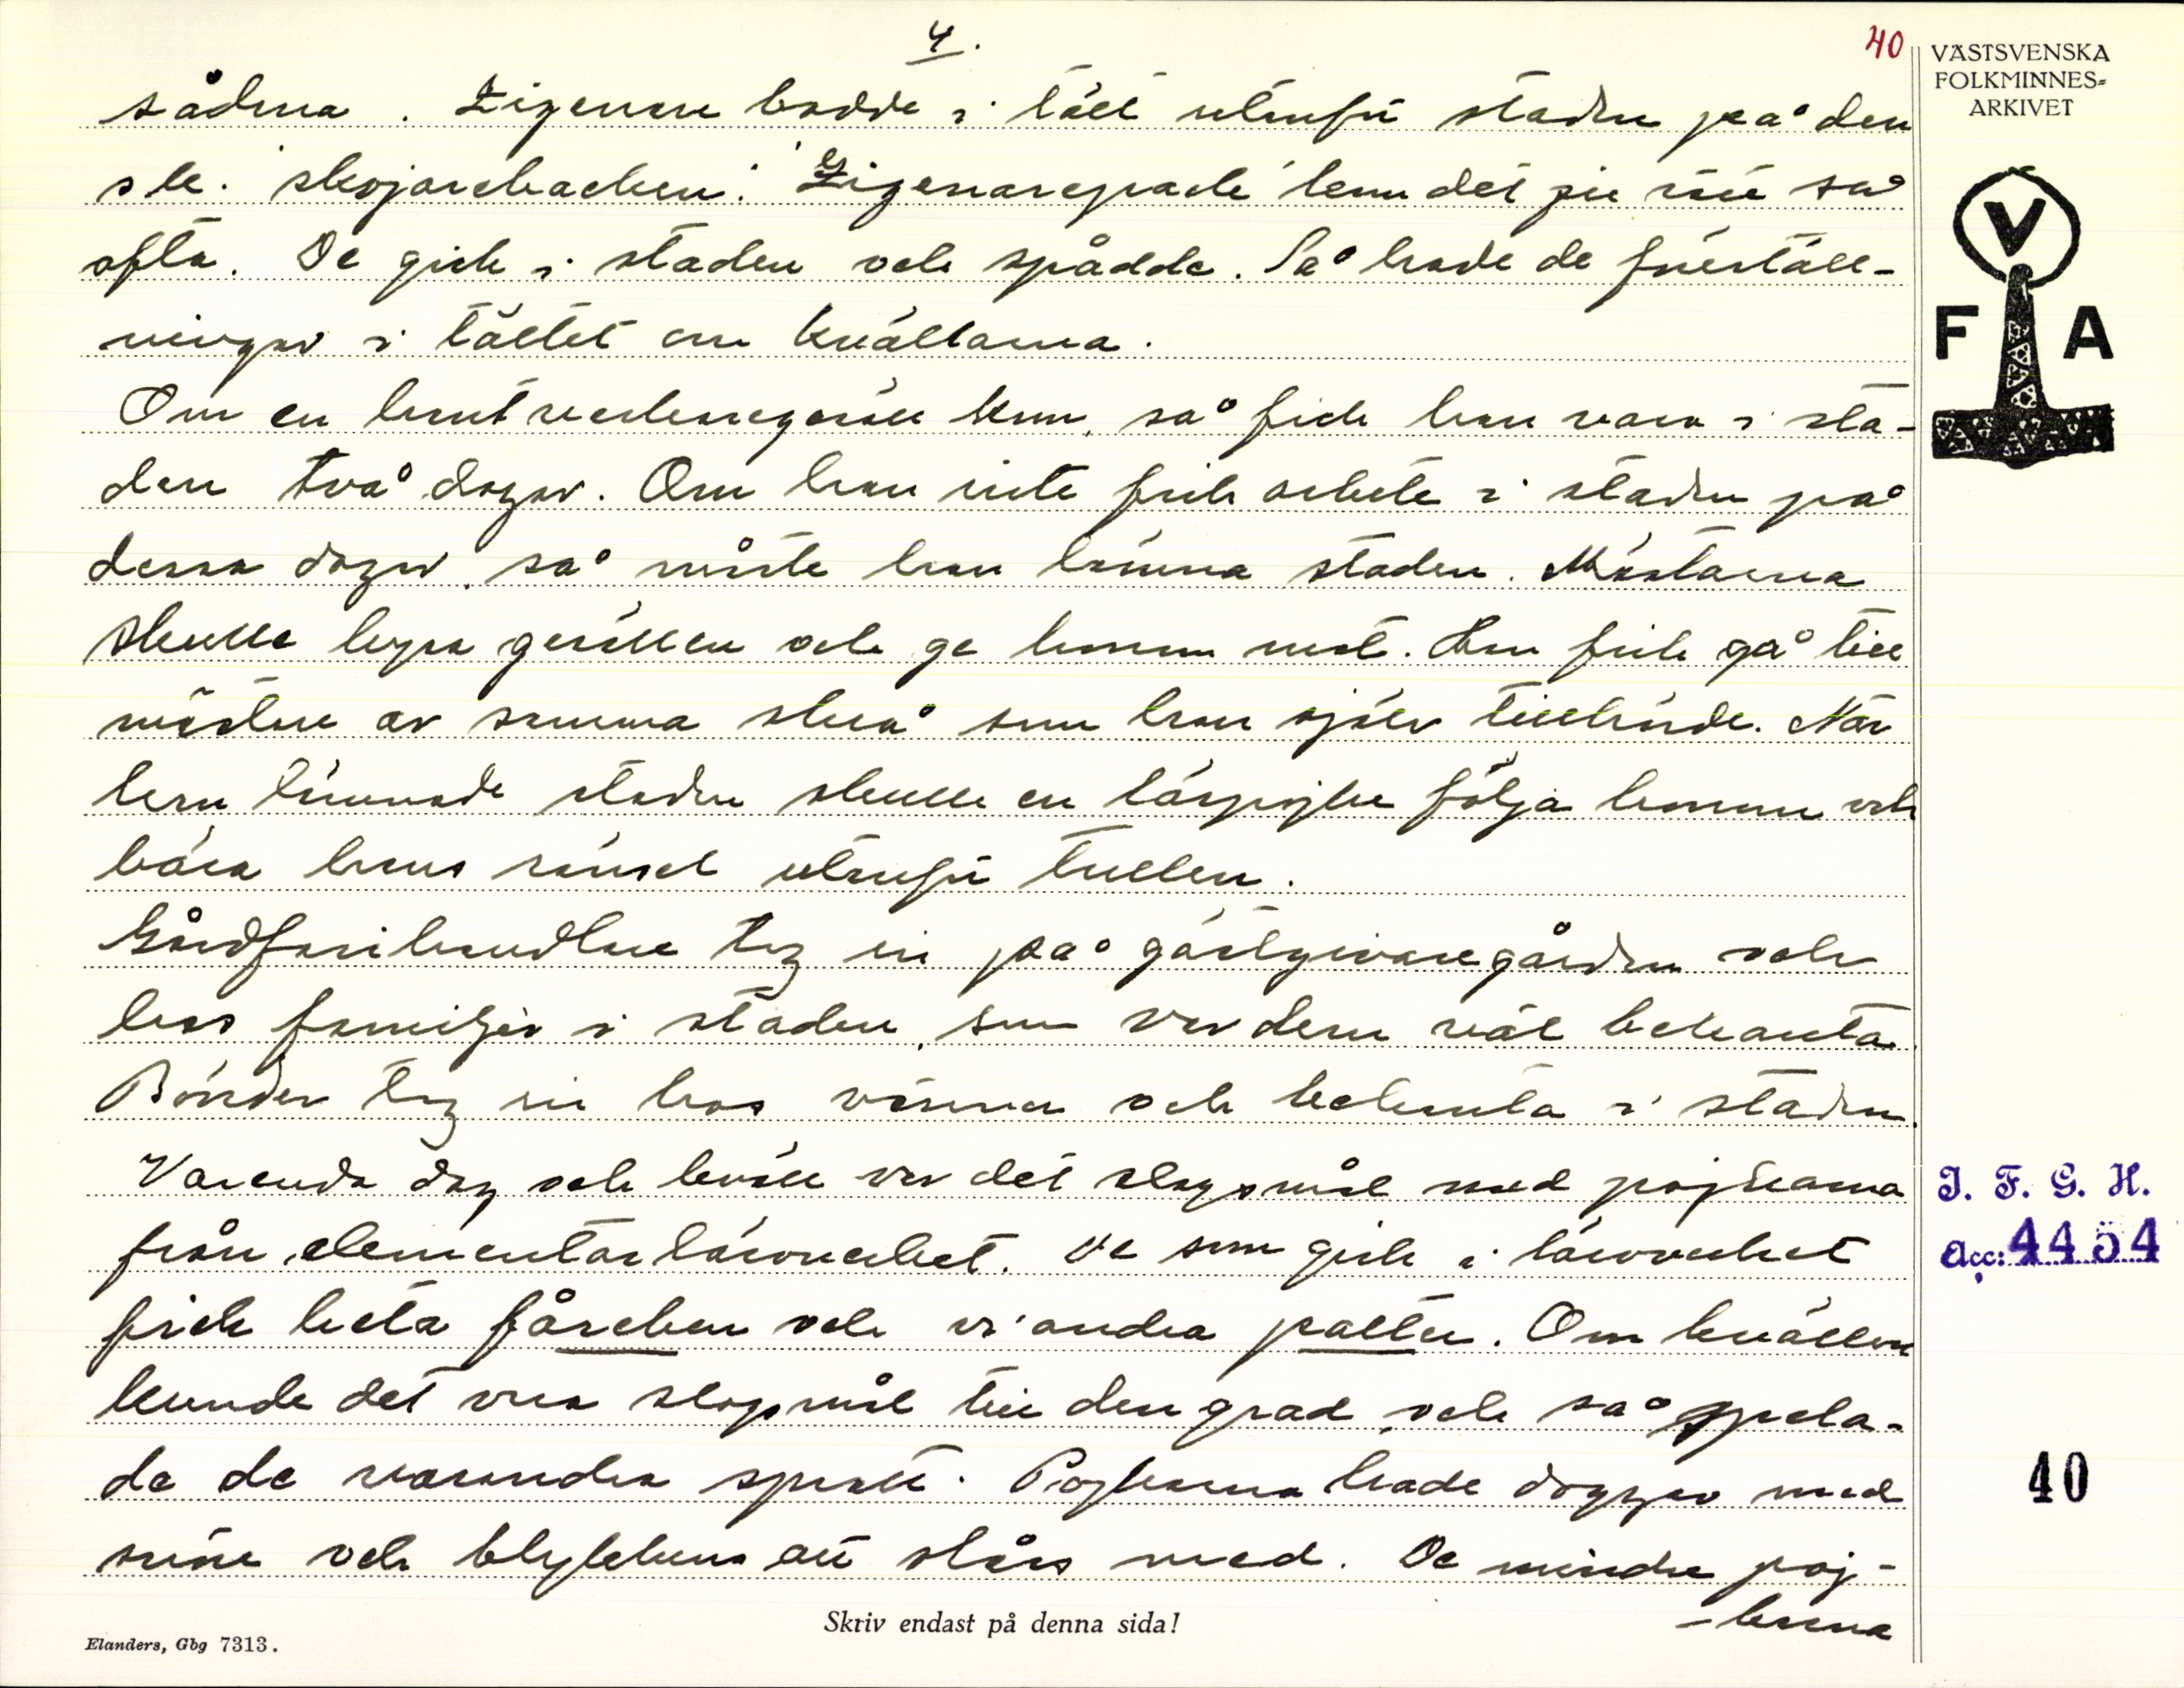 4.
40
VÄSTSVENSKA
FOLKMINNES=
ARKIVET
sådma. Zigenare bodde i tält utanför staden på den
s.k. skojarebacken. Zigenarepack kom det jie rätt så
ofta. De gick i staden och spådde. Så hade de föreställ-
ningar i tältet om kvällarna.
Om en hantverkaregesäll kom, så fick han vara i sta-
den två dagar. Om han inte fick arbete i staden på
dessa dagar, så måste han lämna staden. Mästarna
skulle legra gesällen och ge honom mat. Han fick gå till
mästare av samma skrå som han själv tillhörde. När
han lämnade staden skulle en läspojke följa honom och
bära hans ränsel utanför tullen.
Gårdfarihandlare tog in på gästgivaregården och
hos familjer i staden, som var dem väl bekanta.
Bönder tog in hos vänner och bekanta i staden.
Varenda dag och kväll var det slagsmål med pojkarna
från elementarläroverket. De som gick i läroverket
fick heta fåreben och vi andra palter. Om kvällen
kunde det vara slagsmål till den grad, och så spela-
de de varandra spratt. Pojkarna hade daggar med
snöre och blyklump att slåss med. De mindre poj-
-karna
V
F A
I. F. G. H.
Acc: 4454
40
Skriv endast på denna sida!
Elanders, Gbg 7313.